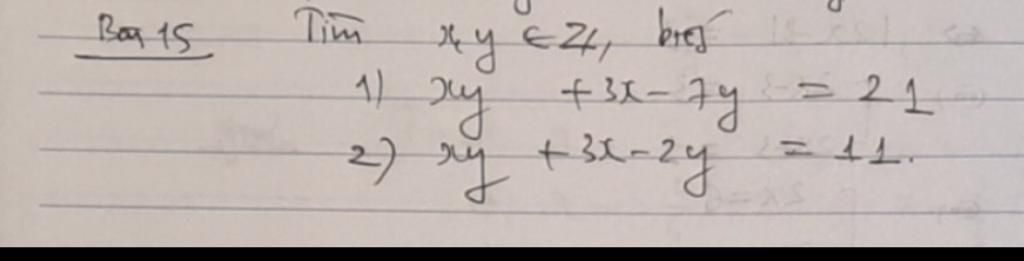 Bài 15 Tìm x, y ∈ Z, biết
1) xy + 3x - 7y = 21
2) xy + 3x - 2y = 11.